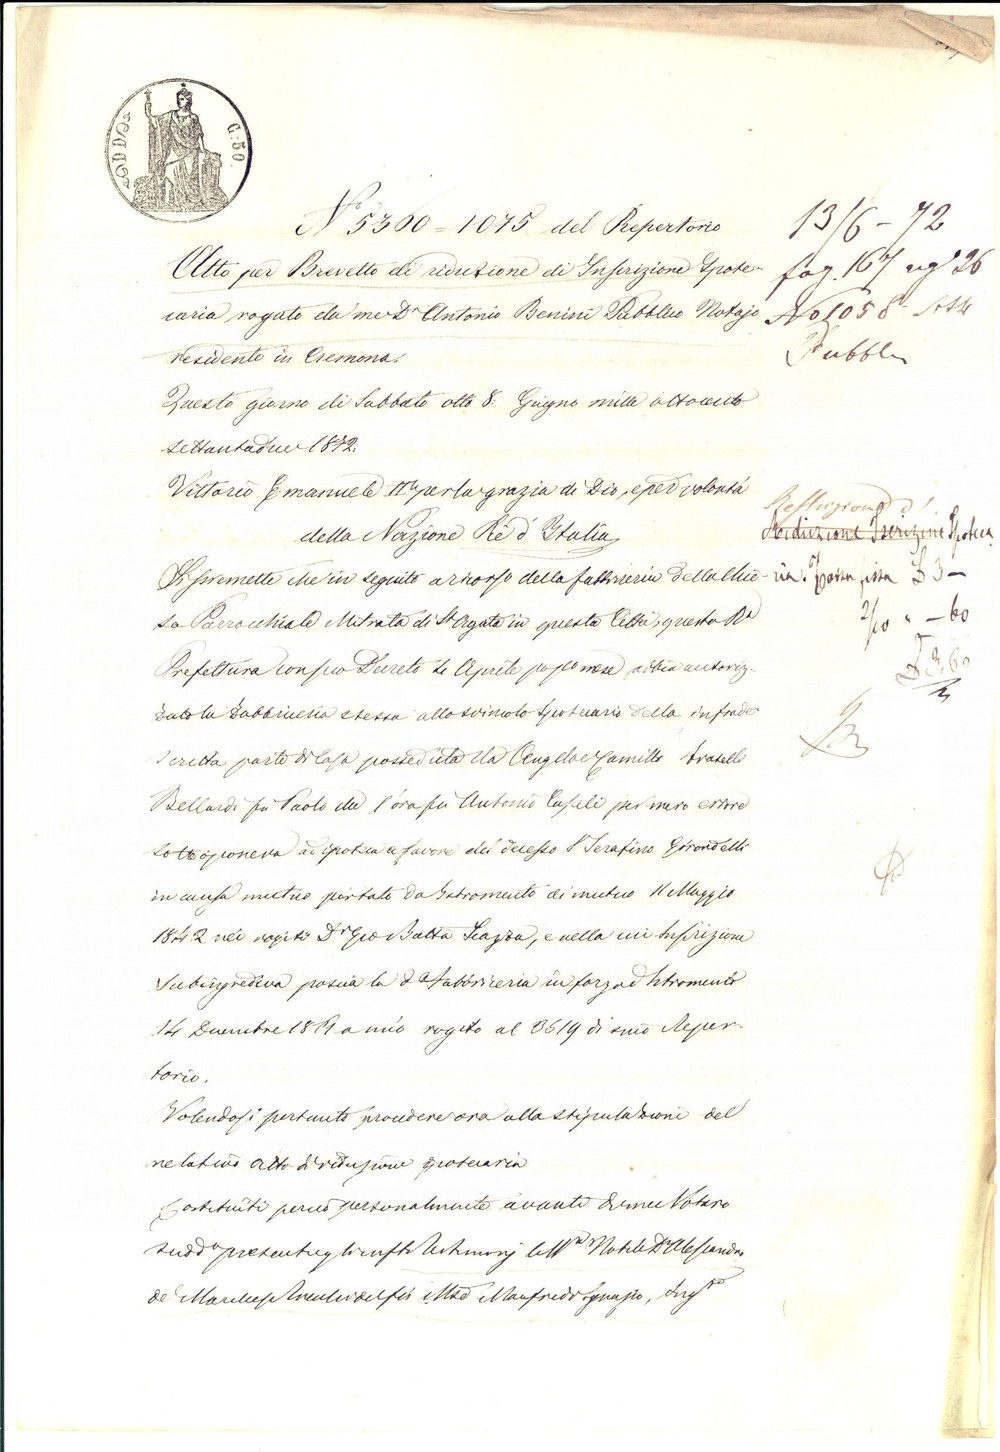 C: 50
N.° 5360 = 1075 del Repertorio
Atto per Brevetto di riduzione di Inscrizione Ipote-
caria rogato da me Dr Antonio Benini Pubblico Notajo
residente in Cremona.
Questo giorno di Sabbato otto 8. Giugno mille ottocento
settantadue 1872.
Vittorio Emanuele II per la grazia di Dio, e per volontà
della Nazione Re d'Italia
Si premette che in seguito a ricorso della fabbriceria della Chie-
sa Parrocchiale Mitrata di St Agata in questa Città, questa Ra
Prefettura con suo Decreto Aprile mese autoriz-
zato la Fabbriceria stessa allo svincolo Ipotecario della infrade-
scritta parte di Casa posseduta da Angelo e Camillo fratelli
Bellardi fu Paolo che l'ora fu Antonio per mero errore
sottoponeva ad ipoteca a favore del Serafino Girondelli
in causa mutuo portato da Istromento di mutuo 11 Maggio
1842 nei rogiti Dr Gio Batta, e nella cui Inscrizione
subingrediva poscia la da Fabbriceria in forza d'Istromento
14 Dicembre a mio rogito al 3619 di mio Reper-
torio.
Volendosi pertanto procedere ora alla stipulazione del
relativo atto di riduzione ipotecaria
Costituiti perciò personalmente avanti di me Notaro
sudd° presenti gl'infti testimonj Nobile Dr Alessandro
de' Marchesi fu Manfredo Ignazio,
13/6 - 72
fog. 167 26
No 1058
Pubbl
Restrizione d'
Riduzione Iscrizione Ipoteca
ria. Tassa fissa £ 3 -
2/10 " - 60
£ 3.60